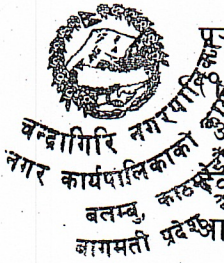 चन्द्रागिरि नगरपालिका
नगर कार्यपालिकाको
बलम्बु,
बागमती प्रदेश